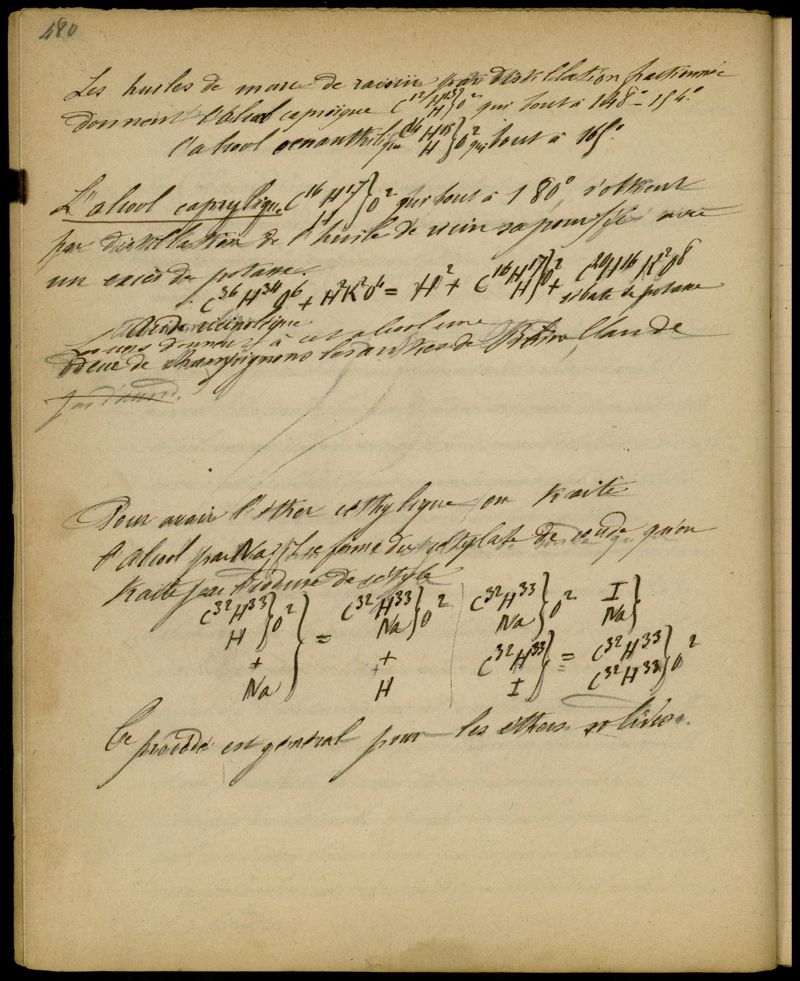 480
Les huiles de marc de raisin par distillation fractionnée
donnent l'alcool caproïque C12H13 H } O2 qui bout à 148°-154°
l'alcool oenanthylique C14H15 H } O2 qui bout à 165°
L'alcool caprylique C16H17 H } O2 qui bout à 180° s'obtient
par distillation de l'huile de ricin saponifiée avec
un excès de potasse.
C36H34O6 + H2K2O4 = H2 + C16H17 H } O2 + C20H16K2O8
Acide ricinolique sébate de potasse
Les uns donnent à cet alcool une
odeur de champignons les autres de
Pour avoir l'éther céthylique on traite
l'alcool par Na, il se forme du cétylate de soude qu'on
traite par l'iodure de cétyle
C32H33 H } O2 + Na } = C32H33 Na } O2 + H
C32H33 Na } O2 C32H33 I } = I Na } C32H33 C32H33 } O2
Ce procédé est général pour les éthers solides.